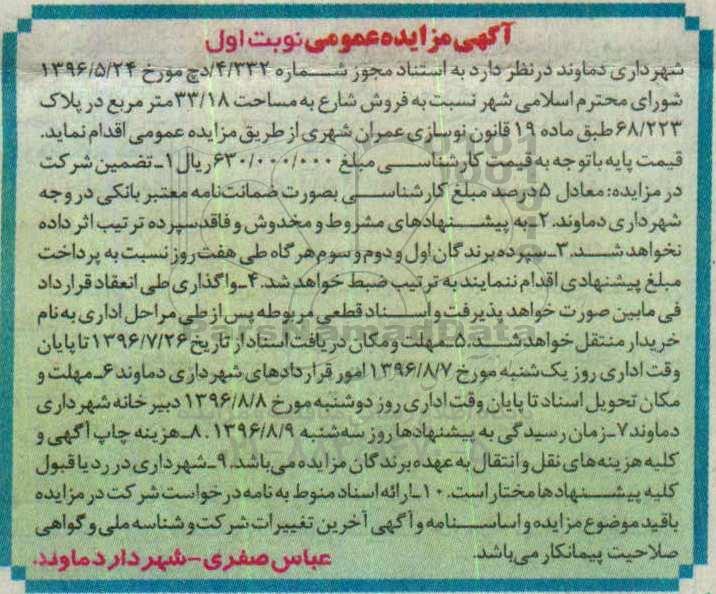 آگهی مزایده عمومی نوبت اول
شهرداری دماوند در نظر دارد به استناد مجوز شماره ۴/۲۳۲/دچ مورخ ۱۳۹۶/۵/۲۴
شورای محترم اسلامی شهر نسبت به فروش شارع به مساحت ۳۳/۱۸ متر مربع در پلاک
۶۸/۲۲۳ طبق ماده ۱۹ قانون نوسازی عمران شهری از طریق مزایده عمومی اقدام نماید.
قیمت پایه باتوجه به قیمت کارشناسی مبلغ ۶۳۰/۰۰۰/۰۰۰ ریال ۱ـ تضمین شرکت
در مزایده: معادل ۵ درصد مبلغ کارشناسی بصورت ضمانت‌نامه معتبر بانکی در وجه
شهرداری دماوند. ۲ـ به پیشنهادهای مشروط و مخدوش و فاقد سپرده ترتیب اثر داده
نخواهد شد. ۳ـ سپرده برندگان اول و دوم و سوم هرگاه طی هفت روز نسبت به پرداخت
مبلغ پیشنهادی اقدام ننمایند به ترتیب ضبط خواهد شد. ۴ـ واگذاری طی انعقاد قرارداد
فی مابین صورت خواهد پذیرفت و اسناد قطعی مربوطه پس از طی مراحل اداری به نام
خریدار منتقل خواهد شد. ۵ـ مهلت و مکان دریافت اسناد از تاریخ ۱۳۹۶/۷/۲۶ تا پایان
وقت اداری روز یک‌شنبه مورخ ۱۳۹۶/۸/۷ امور قراردادهای شهرداری دماوند ۶ـ مهلت و
مکان تحویل اسناد تا پایان وقت اداری روز دوشنبه مورخ ۱۳۹۶/۸/۸ دبیرخانه شهرداری
دماوند ۷ـ زمان رسیدگی به پیشنهادها روز سه‌شنبه ۱۳۹۶/۸/۹. ۸ـ هزینه چاپ آگهی و
کلیه هزینه‌های نقل و انتقال به عهده برندگان مزایده می‌باشد. ۹ـ شهرداری در رد یا قبول
کلیه پیشنهادها مختار است. ۱۰ـ ارائه اسناد منوط به نامه درخواست شرکت در مزایده
باقید موضوع مزایده و اساسنامه و آگهی آخرین تغییرات شرکت و شناسه ملی و گواهی
صلاحیت پیمانکار می‌باشد.
عباس صفری-شهردار دماوند.
ParsNamadData